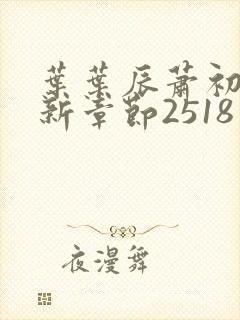 葉葉辰蕭初
新章節2518
夜漫舞